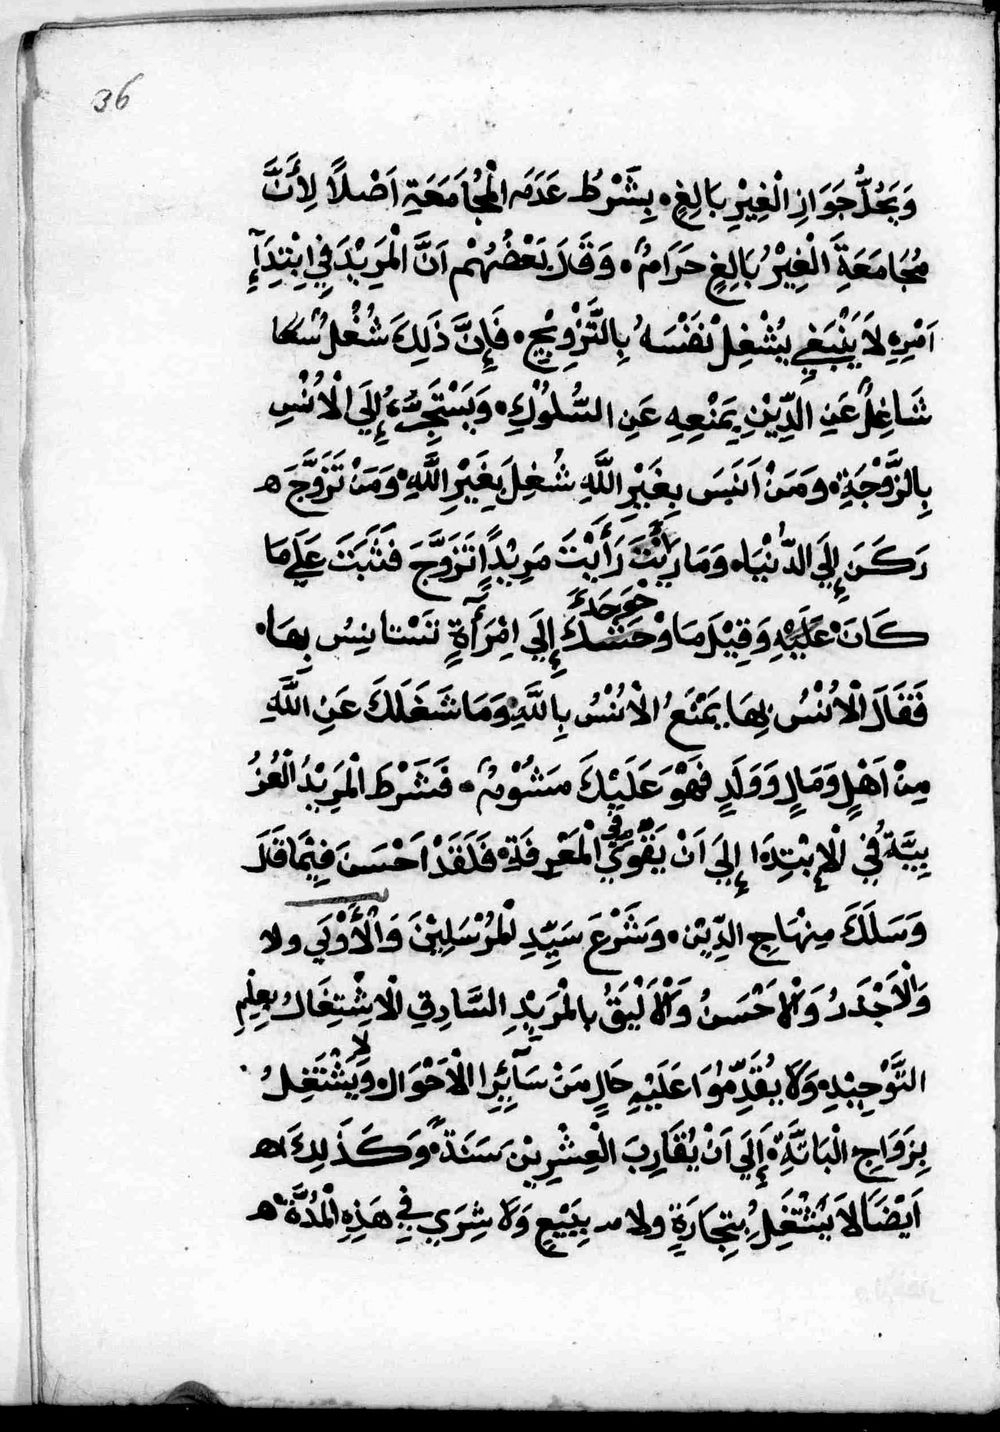 36
وَيَحُلُّ جَوَازِ الْغِيْرِ بَالِغٍ۰ بِشَرْطِ عَدَمِ الْمُجَامَعَةِ اَصْلاً لِأَنَّ
مُجَامَعَةَ الْغِيْرُ بَالِغٍ حَرَامٌ۰ وَقَلَ بَعْضُهُمْ اَنَّ الْمَرِيْدَ فِي اِبْتِدَآءِ
اَمْرِهِ لاَ يَنْبَغِي يُشْغِلْ نَفْسَهُ بِالتَّزْوِيْجِ۰ فَإِنَّ ذَلِكَ شُغْلٌ
شَاغِلٌ عَنِ الدِّيْنِ يَمْنَعِهِ عَنِ السُّلُوْكِ۰ وَيَسْتَجِرُّهُ إِلَي الْاُنْسِ
بِالزَّوْجَةِ۰ وَمَنْ اَنَسَ بِغَيْرِ اللَّهِ شُغِلَ بِغَيْرِ اللَّهِ۰ وَمَنْ تَزَوَّجَ ه
رَكَنَ إِلَي الدُّنْيَا۰ وَمَا رَأَيْتَ مَرِيْدًا تَزَوَّجَ فَثَبَتَ عَلَي مَا
كَانَ عَلَيْهِ وَقِيْلَ مَا وْحَشَدَكَ إِلَي اِمْرَأَةٍ تَسْتَانِسُ بِهَا۰
فَقَالَ الْاُنْسُ بِهَا يَمْنَعُ الْاُنْسُ بِاللَّهِ۰ وَمَا شَغَلَكَ عَنِ اللَّهِ
مِنْ اَهْلٍ وَمَالٍ وَوَلَدٍ فَهْوَ عَلَيْكَ مَشُوْمٌ۰ فَشَرْطَ الْمَرِيْدُ الْعُزُ
بِيَّةُ فِي الْاِبْتِدَا إِلَي اَنْ يَقْوَي فِي الْمَعْرِفَةِ۰ فَلَقَدْ اَحْسَنَ فِيْمَا قَلَ
وَسَلَكَ مِنْهَاجِ الدِّيْنِ۰ وَشَرْعَ سَيِّدِ لْمُرْسَلِيْنَ وَالْأَوْلَي ولا
وَالْاَجْدَرُ وَالْاَحْسَنُ وَالْاَلْيَقُ بِالْمَرِيْدِ السَّادِقِ الْاِشْتِغَالُ بِعِلْمِ
التَّوْحِيْدِ۰ وَلَا يُقَدِّمُوْا عَلَيْهِ حَالٍ مَنْ سَآئِرِ الْاَحْوَالِ۰ وَلَا يَشْتَغِلُ
بِزَوَاجِ الْبَاتَّةِ۰ إِلَي اَنْ يُقَارِبَ الْعِشْرِيْنَ سَنَةً۰ وَكَذَلِكَ ه
اَيْضًا لاَ يَشْتَغِلُ بِتِجَارَةٍ ولا بِبَيْعٍ وَلَا شِرَي فِي هَذِهِ الْمُدَّةِ ه